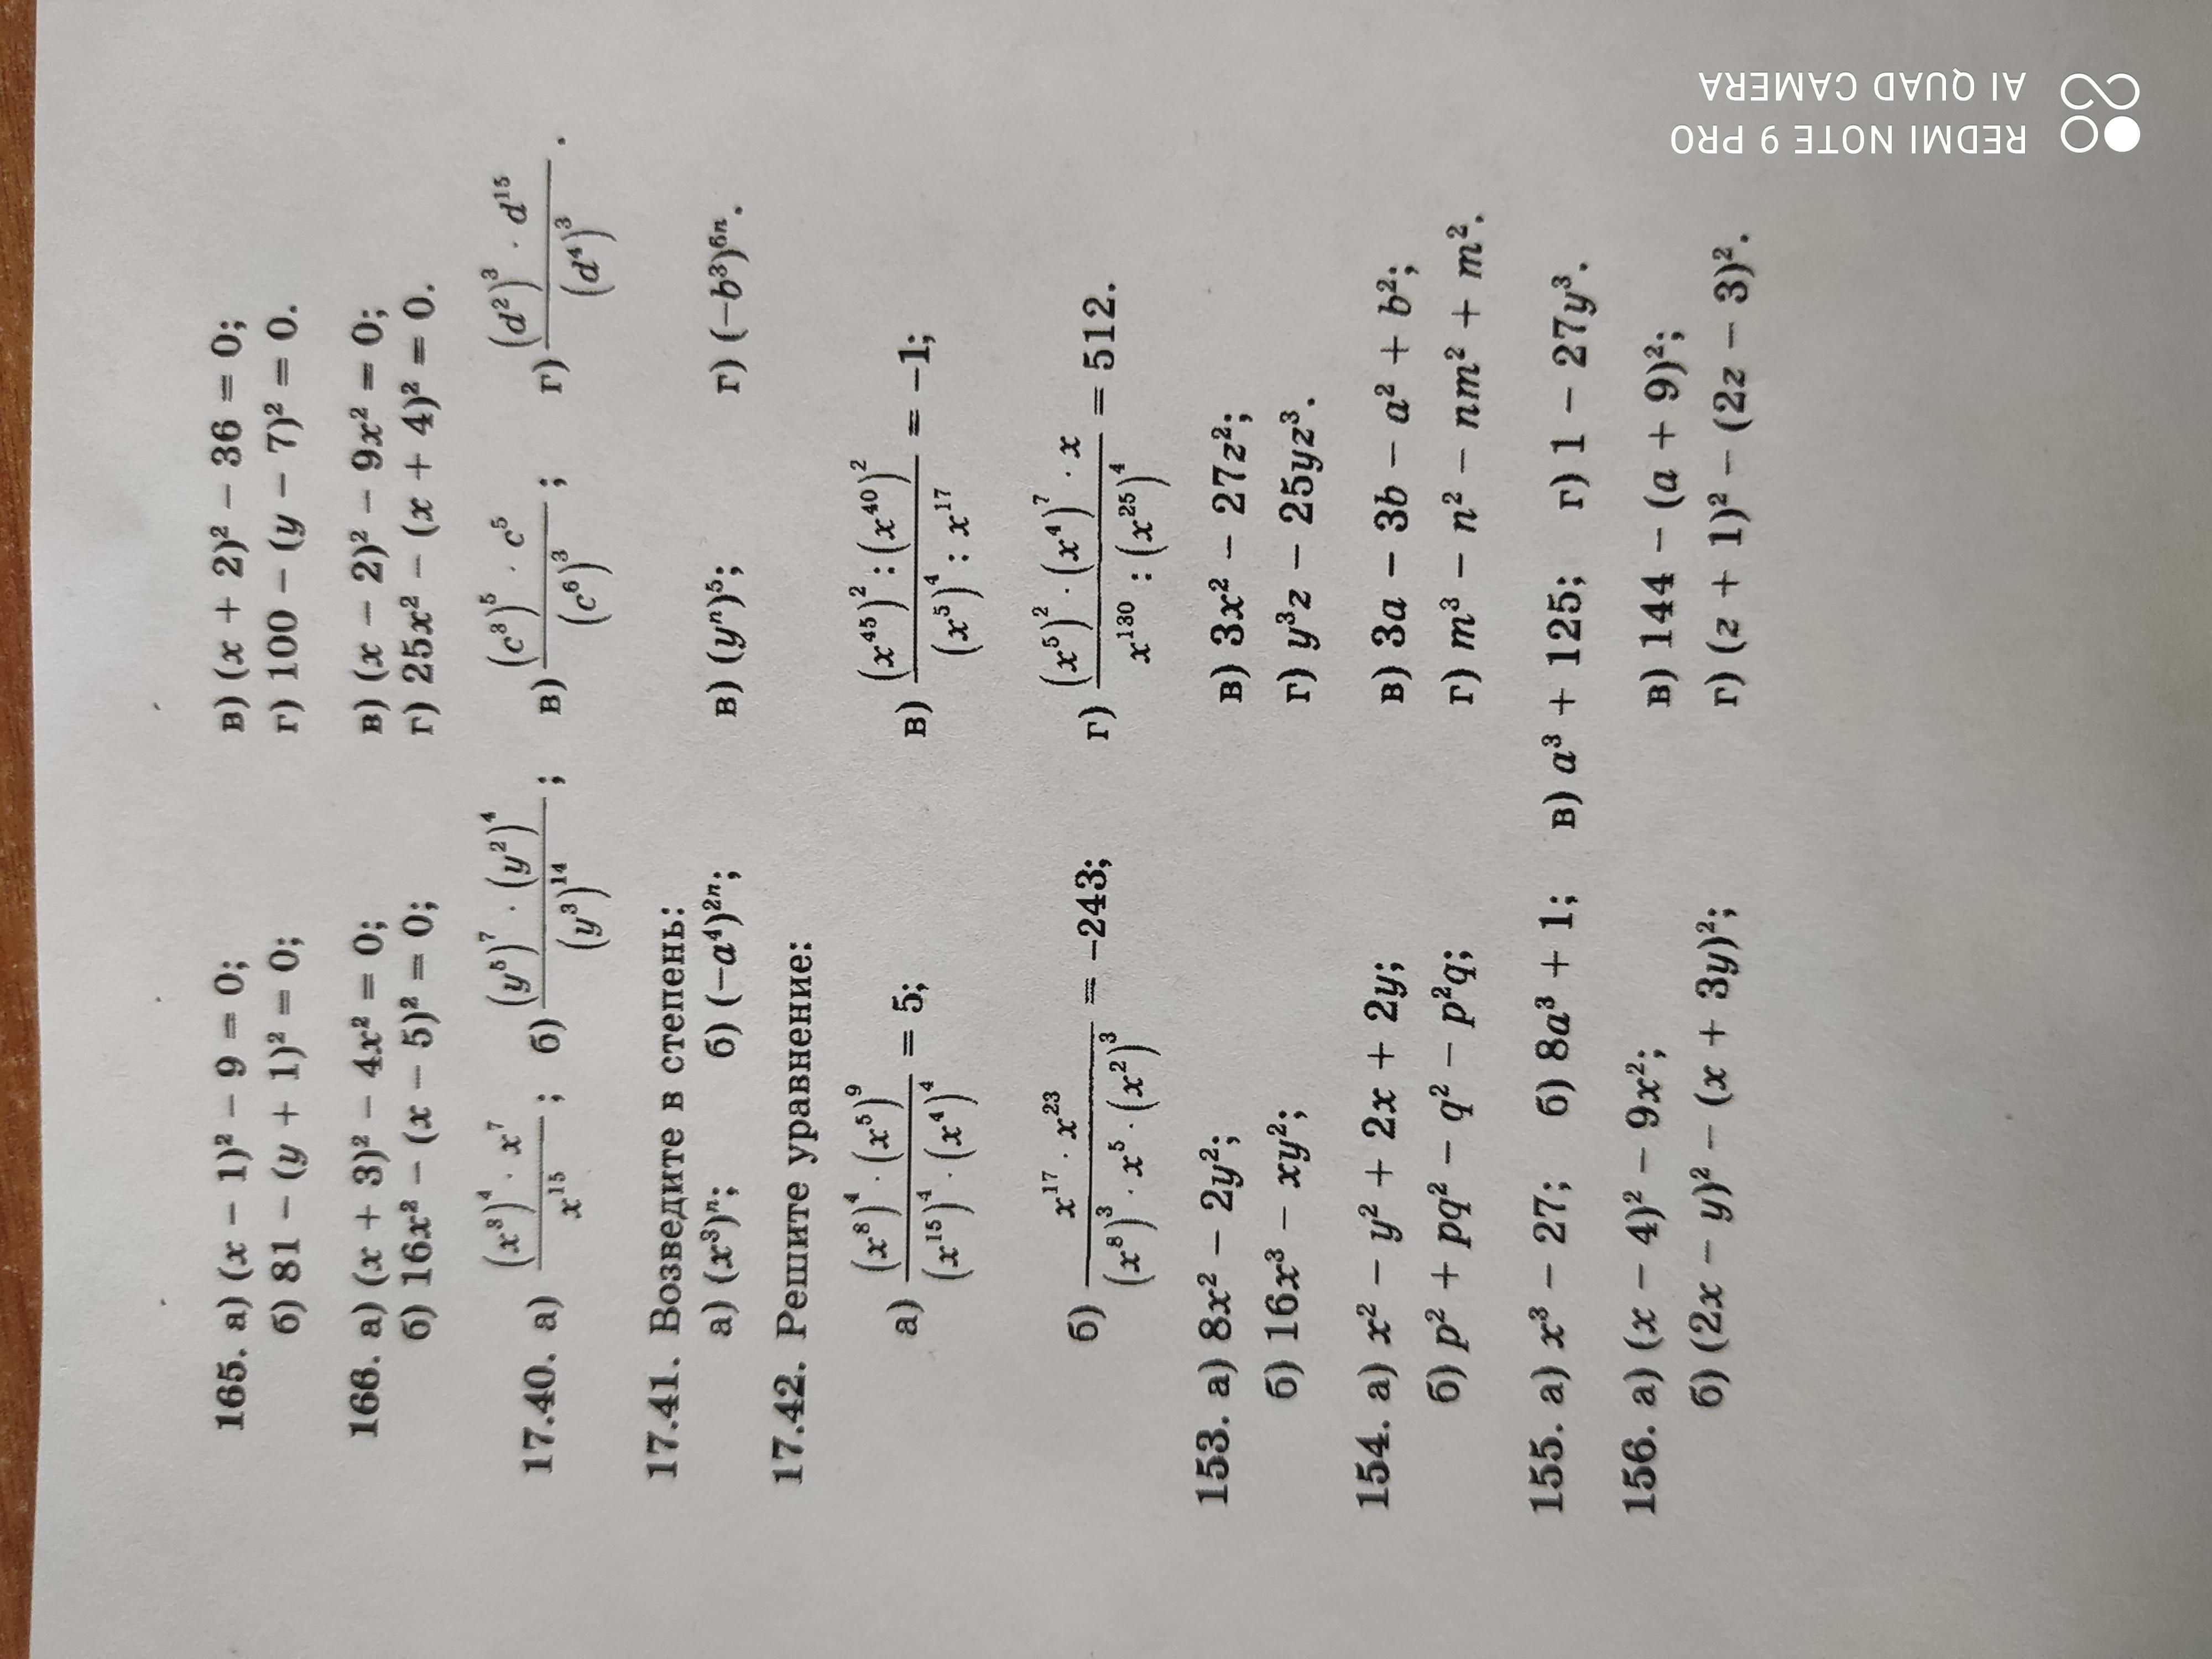 165. а) (x − 1)² − 9 = 0; в) (x + 2)² − 36 = 0;
б) 81 − (y + 1)² = 0; г) 100 − (y − 7)² = 0.
166. а) (x + 3)² − 4x² = 0; в) (x − 2)² − 9x² = 0;
б) 16x² − (x − 5)² = 0; г) 25x² − (x + 4)² = 0.
17.40. а) (x³)⁴ · x⁷ / x¹⁵; б) (y⁵)⁷ · (y²)⁴ / (y³)¹⁴; в) (c³)⁵ · c⁵ / (c⁶)³; г) (d²)³ · d¹⁵ / (d⁴)³.
17.41. Возведите в степень:
а) (x³)ⁿ; б) (−a⁴)²ⁿ; в) (yⁿ)⁵; г) (−b³)⁶ⁿ.
17.42. Решите уравнение:
а) (x⁸)⁴ · (x⁵)⁹ / (x¹⁵)⁴ · (x⁴)⁴ = 5; в) (x⁴⁵)² : (x⁴⁰)² / (x⁵)⁴ : x¹⁷ = −1;
б) x¹⁷ · x²³ / (x⁸)³ · x⁵ · (x²)³ = −243; г) (x⁵)² · (x⁴)⁷ · x / x¹³⁰ : (x²⁵)⁴ = 512.
153. а) 8x² − 2y²; в) 3x² − 27z²;
б) 16x³ − xy²; г) y³z − 25yz³.
154. а) x² − y² + 2x + 2y; в) 3a − 3b − a² + b²;
б) p² + pq² − q² − p²q; г) m³ − n² − nm² + m².
155. а) x³ − 27; б) 8a³ + 1; в) a³ + 125; г) 1 − 27y³.
156. а) (x − 4)² − 9x²; в) 144 − (a + 9)²;
б) (2x − y)² − (x + 3y)²; г) (z + 1)² − (2z − 3)².
REDMI NOTE 9 PRO
AI QUAD CAMERA